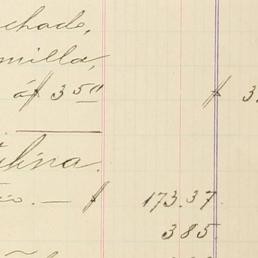 chado,
milla,
á $ 3 50 $ 3
lina.
io. — $ 173.37.
385